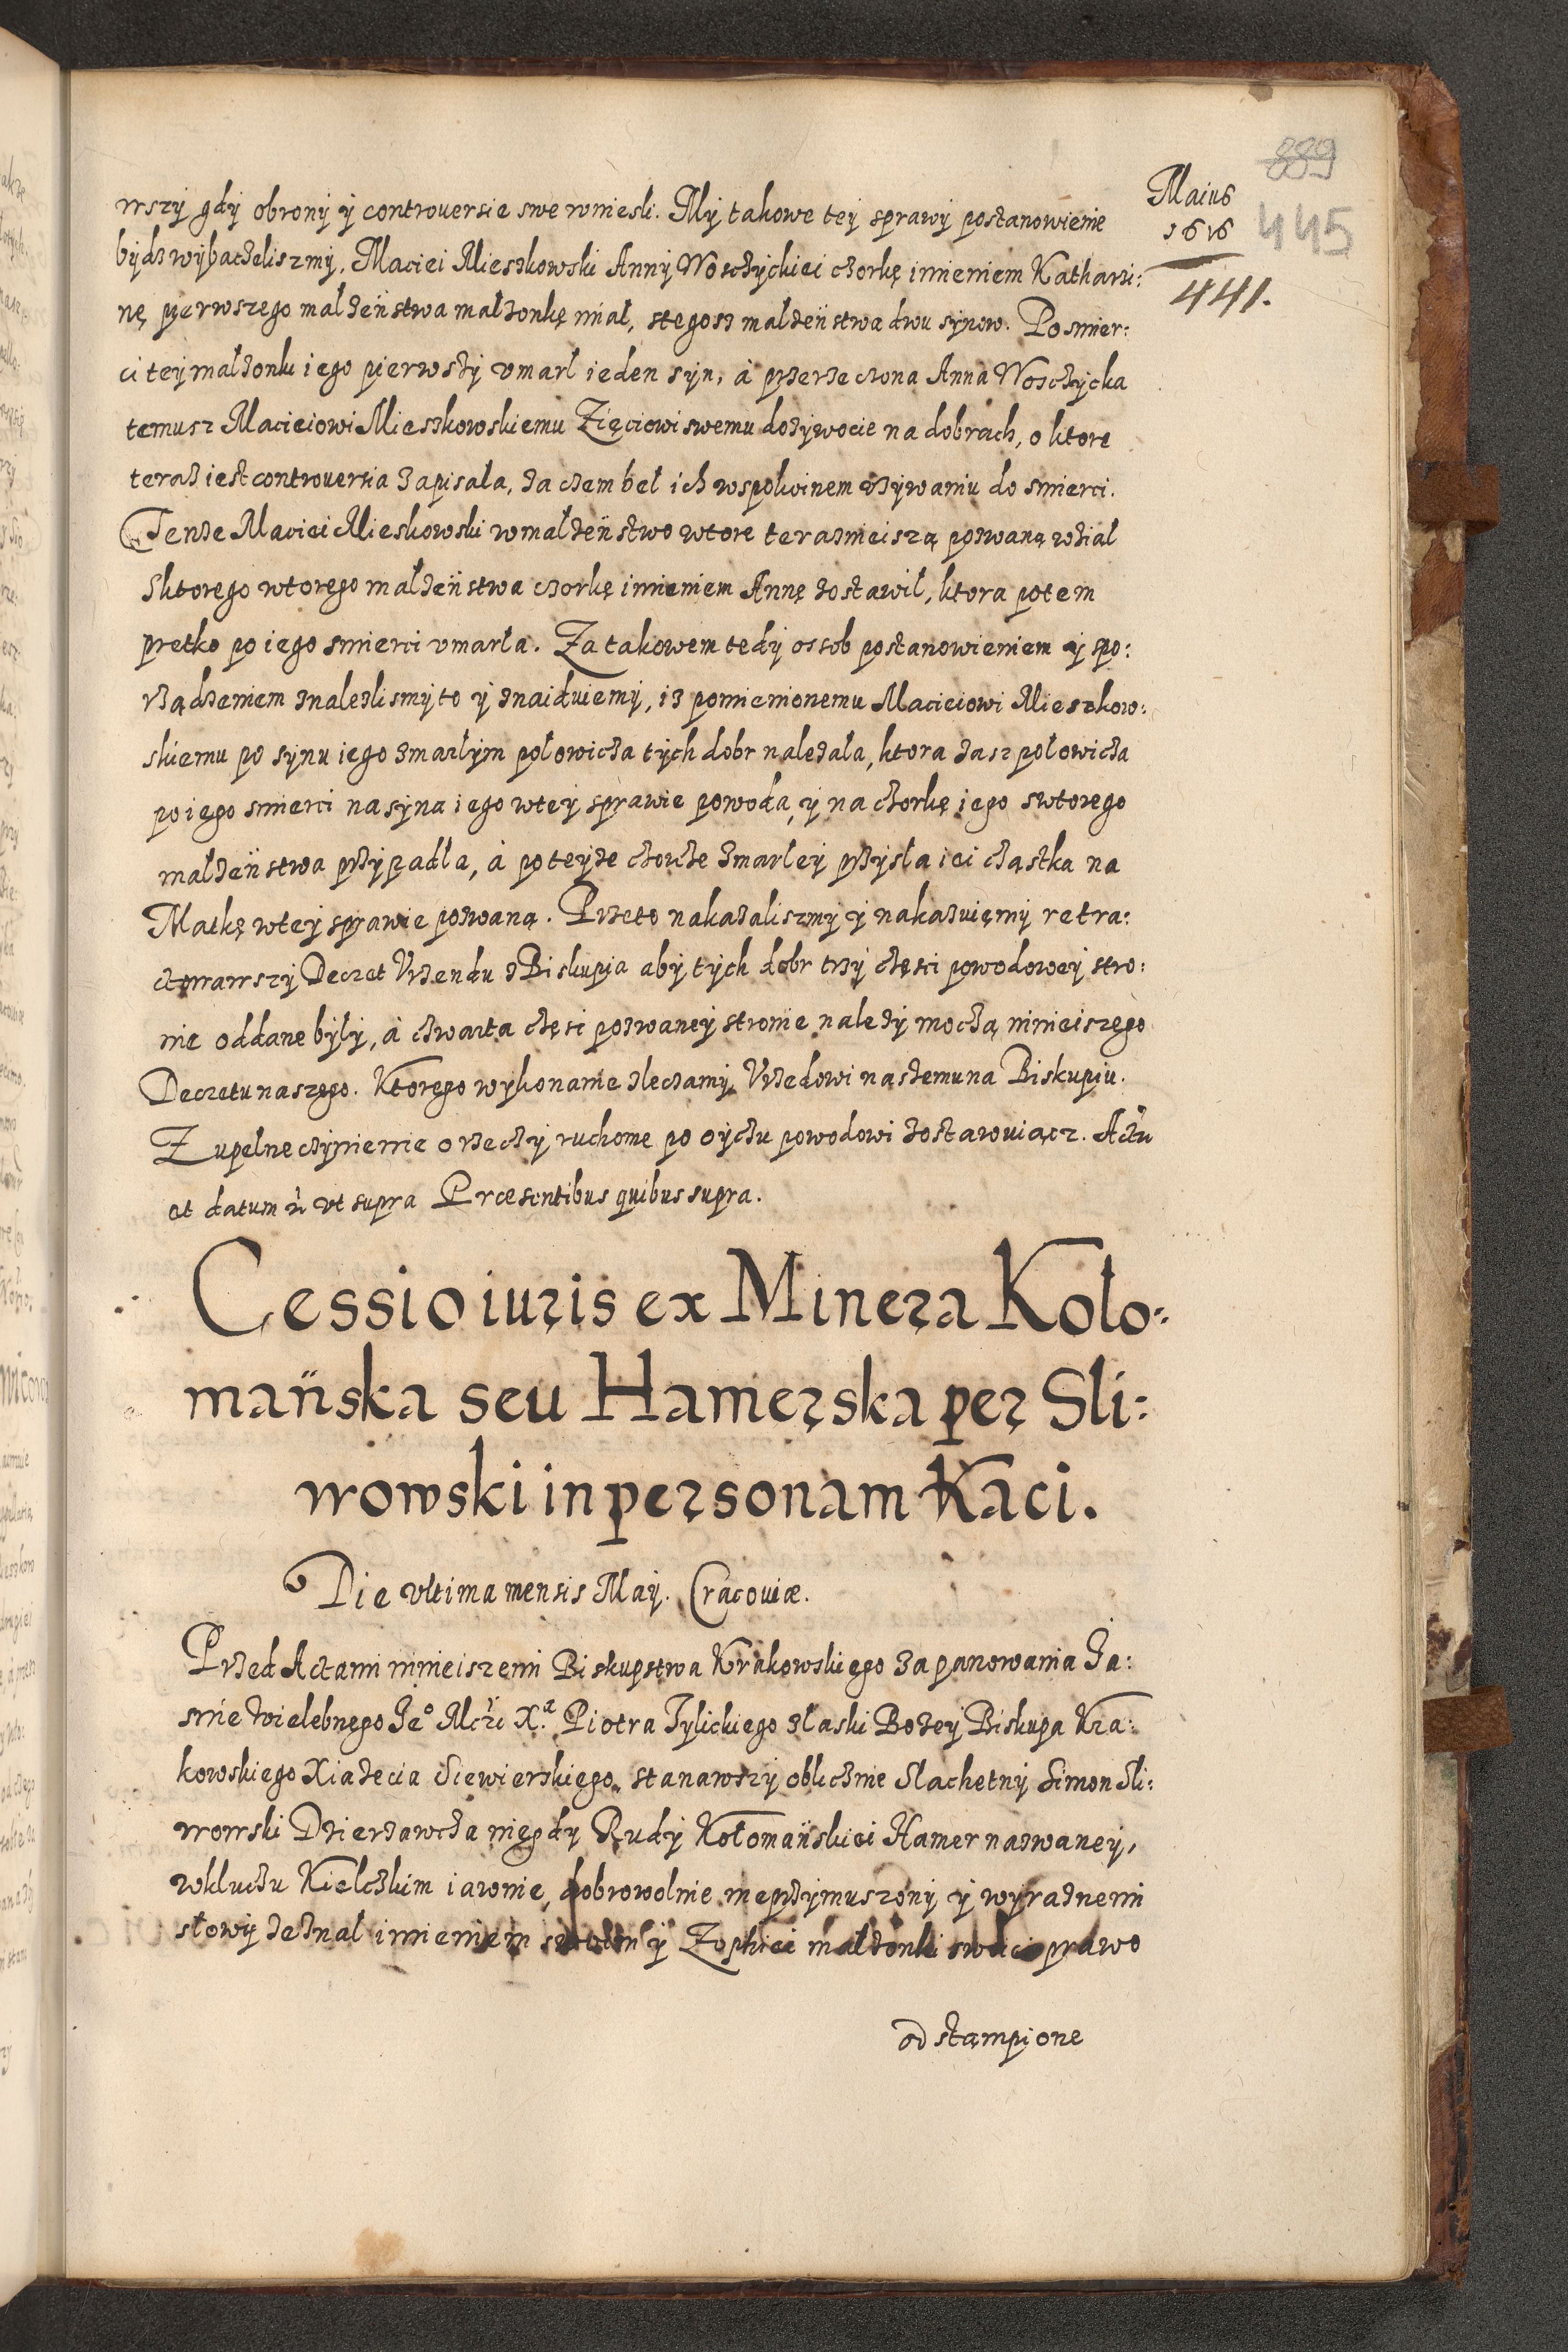 Maius
1616
441.
889
445
wszÿ gdÿ obronÿ ÿ controuersie swe wniesli. Mÿ takowe teÿ sprawÿ postanowienie
bÿdz wÿbaczeliszmÿ, Maciei Mieszkowski Annÿ Woszczÿckiei czorkę imieniem Kathari:
nę pierwszego małżeństwa małżonkę miał, stegosz małżeństwa dwu sÿnow. Po smier:
ci teÿ małżonki iego pierwszÿ vmarł ieden sÿn, à przerzeczona Anna Wosczÿcka
temusz Macieiowi Mieszkowskiemu Zięciowi swemu dożÿwocie na dobrach, o ktore
teraz iest controuersia zapisała, zaczem beł ich wspokoinem vżÿwaniu do smierci.
Tenże Maciei Mieskowski wmałżeństwo wtore teraznieiszą pozwaną wział
Sktorego wtorego małżeństwa czorkę imieniem Annę zostawił, ktora potem
pretko po iego smierci vmarła. Za takowem tedÿ ossob postanowieniem ÿ spo:
rządzeniem znaleźlismÿ to ÿ znaiduiemÿ, iz pomienionemu Macieiowi Mieszkow:
skiemu po sÿnu iego zmarłÿm połowicza tÿch dobr należała, ktora zasz połowicza
po iego smierci na sÿna iego wteÿ sprawie powoda, ÿ na czorkę iego swtorego
małżeństwa przÿpadła, à po teÿże czorcze zmarłeÿ przÿsła iei cząstka na
Matkę wteÿ sprawie pozwaną. Przeto nakazaliszmÿ ÿ nakazuięmÿ retra:
ctowawszÿ Decret Vrzendu zBiskupia abÿ tÿch dobr trzÿ częsci powodoweÿ stro:
nie oddane bÿłÿ, à czwarta częsc pozwaneÿ stronie należÿ moczą ninieiszego
Decretu naszego. Ktorego wykonanie zleczamÿ Vrzedowi naszemu na Biskupiu.
Zupełne czÿnienie o rzeczÿ ruchome po oÿczu powodowi zostawuiącz. Actu
et datum ut supra Præsentibus quibus supra.
Cessio iuris ex Minera Koło:
mańska seu Hamerska per Sli:
wowski in personam Kaci.
Die vltima mensis Maÿ. Cracouiæ.
Przed Actami ninieiszemi Biskupstwa Krakowskiego za panowania Ja:
snie Wielebnego Je° Mci X.a Piotra Tylickiego z łaski Bożeÿ Biskupa Kra:
kowskiego Xiażecia Siewierskiego, stanawszÿ oblicznie Slachetnÿ Simon Sli:
wowski Dzierżawcza niegdy Rudÿ Kołomańskiei Hamer nazwaneÿ,
wkluczu Kielczkim iawnie, dobrowolnie nieprzÿmuszonÿ ÿ wyraźnemi
słowÿ zeznał imieniem swoim ÿ Zophiei małżonki swoiei prawo
odstąmpione